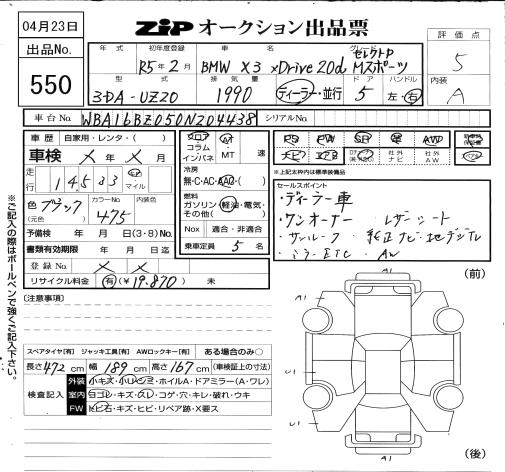 04月23日
ZIP オークション出品票
出品No.
550
評価点
5
内装
A
年式 初年度登録 車名 グレード
R5年2月 BMW X3 xDrive20d セレクトP Mスポーツ
型式 排気量 ドア ハンドル
3DA-UZ20 1990 ディーラー・並行 5 左・右
車台No. WBA16BZ050N204438 シリアルNo.
車歴 自家用・レンタ・( )
車検 × 年 × 月
走行 14,533 km マイル
色 ブラック (元色) カラーNo. 475 内装色
予備検 年 月 日(3・8)No.
書類有効期限 年 月 日迄
登録No. × ×
リサイクル料金 有(¥19,870) 未
フロア コラム インパネ AT・MT 速
冷房
無・C・AC・AAC・( )
燃料
ガソリン・軽油・電気・その他( )
Nox 適合・非適合
乗車定員 5 名
PS PW SR AW
ナビ 社外ナビ 社外AW
※上記太枠内は標準装備品
セールスポイント
・ディーラー車
・ワンオーナー ・レザーシート
・サンルーフ ・純正ナビ・地デジ
・ミラーETC ・AW
【注意事項】
スペアタイヤ【有】 ジャッキ工具【有】 AWロックキー【有】 ある場合のみ○
長さ 472 cm 幅 189 cm 高さ 167 cm (車検証上の寸法)
検査記入
外装 小キズ・小凹シミ・ホイルA・ドアミラー(A・ワレ)
室内 ヨゴレ・キズ・スレ・コゲ・穴・キレ・破れ・ウキ
FW トビ石・キズ・ヒビ・リペア跡・X要ス
※ご記入の際はボールペンで強くご記入下さい。
(前)
A1
A1
U1
U1
A1
(後)